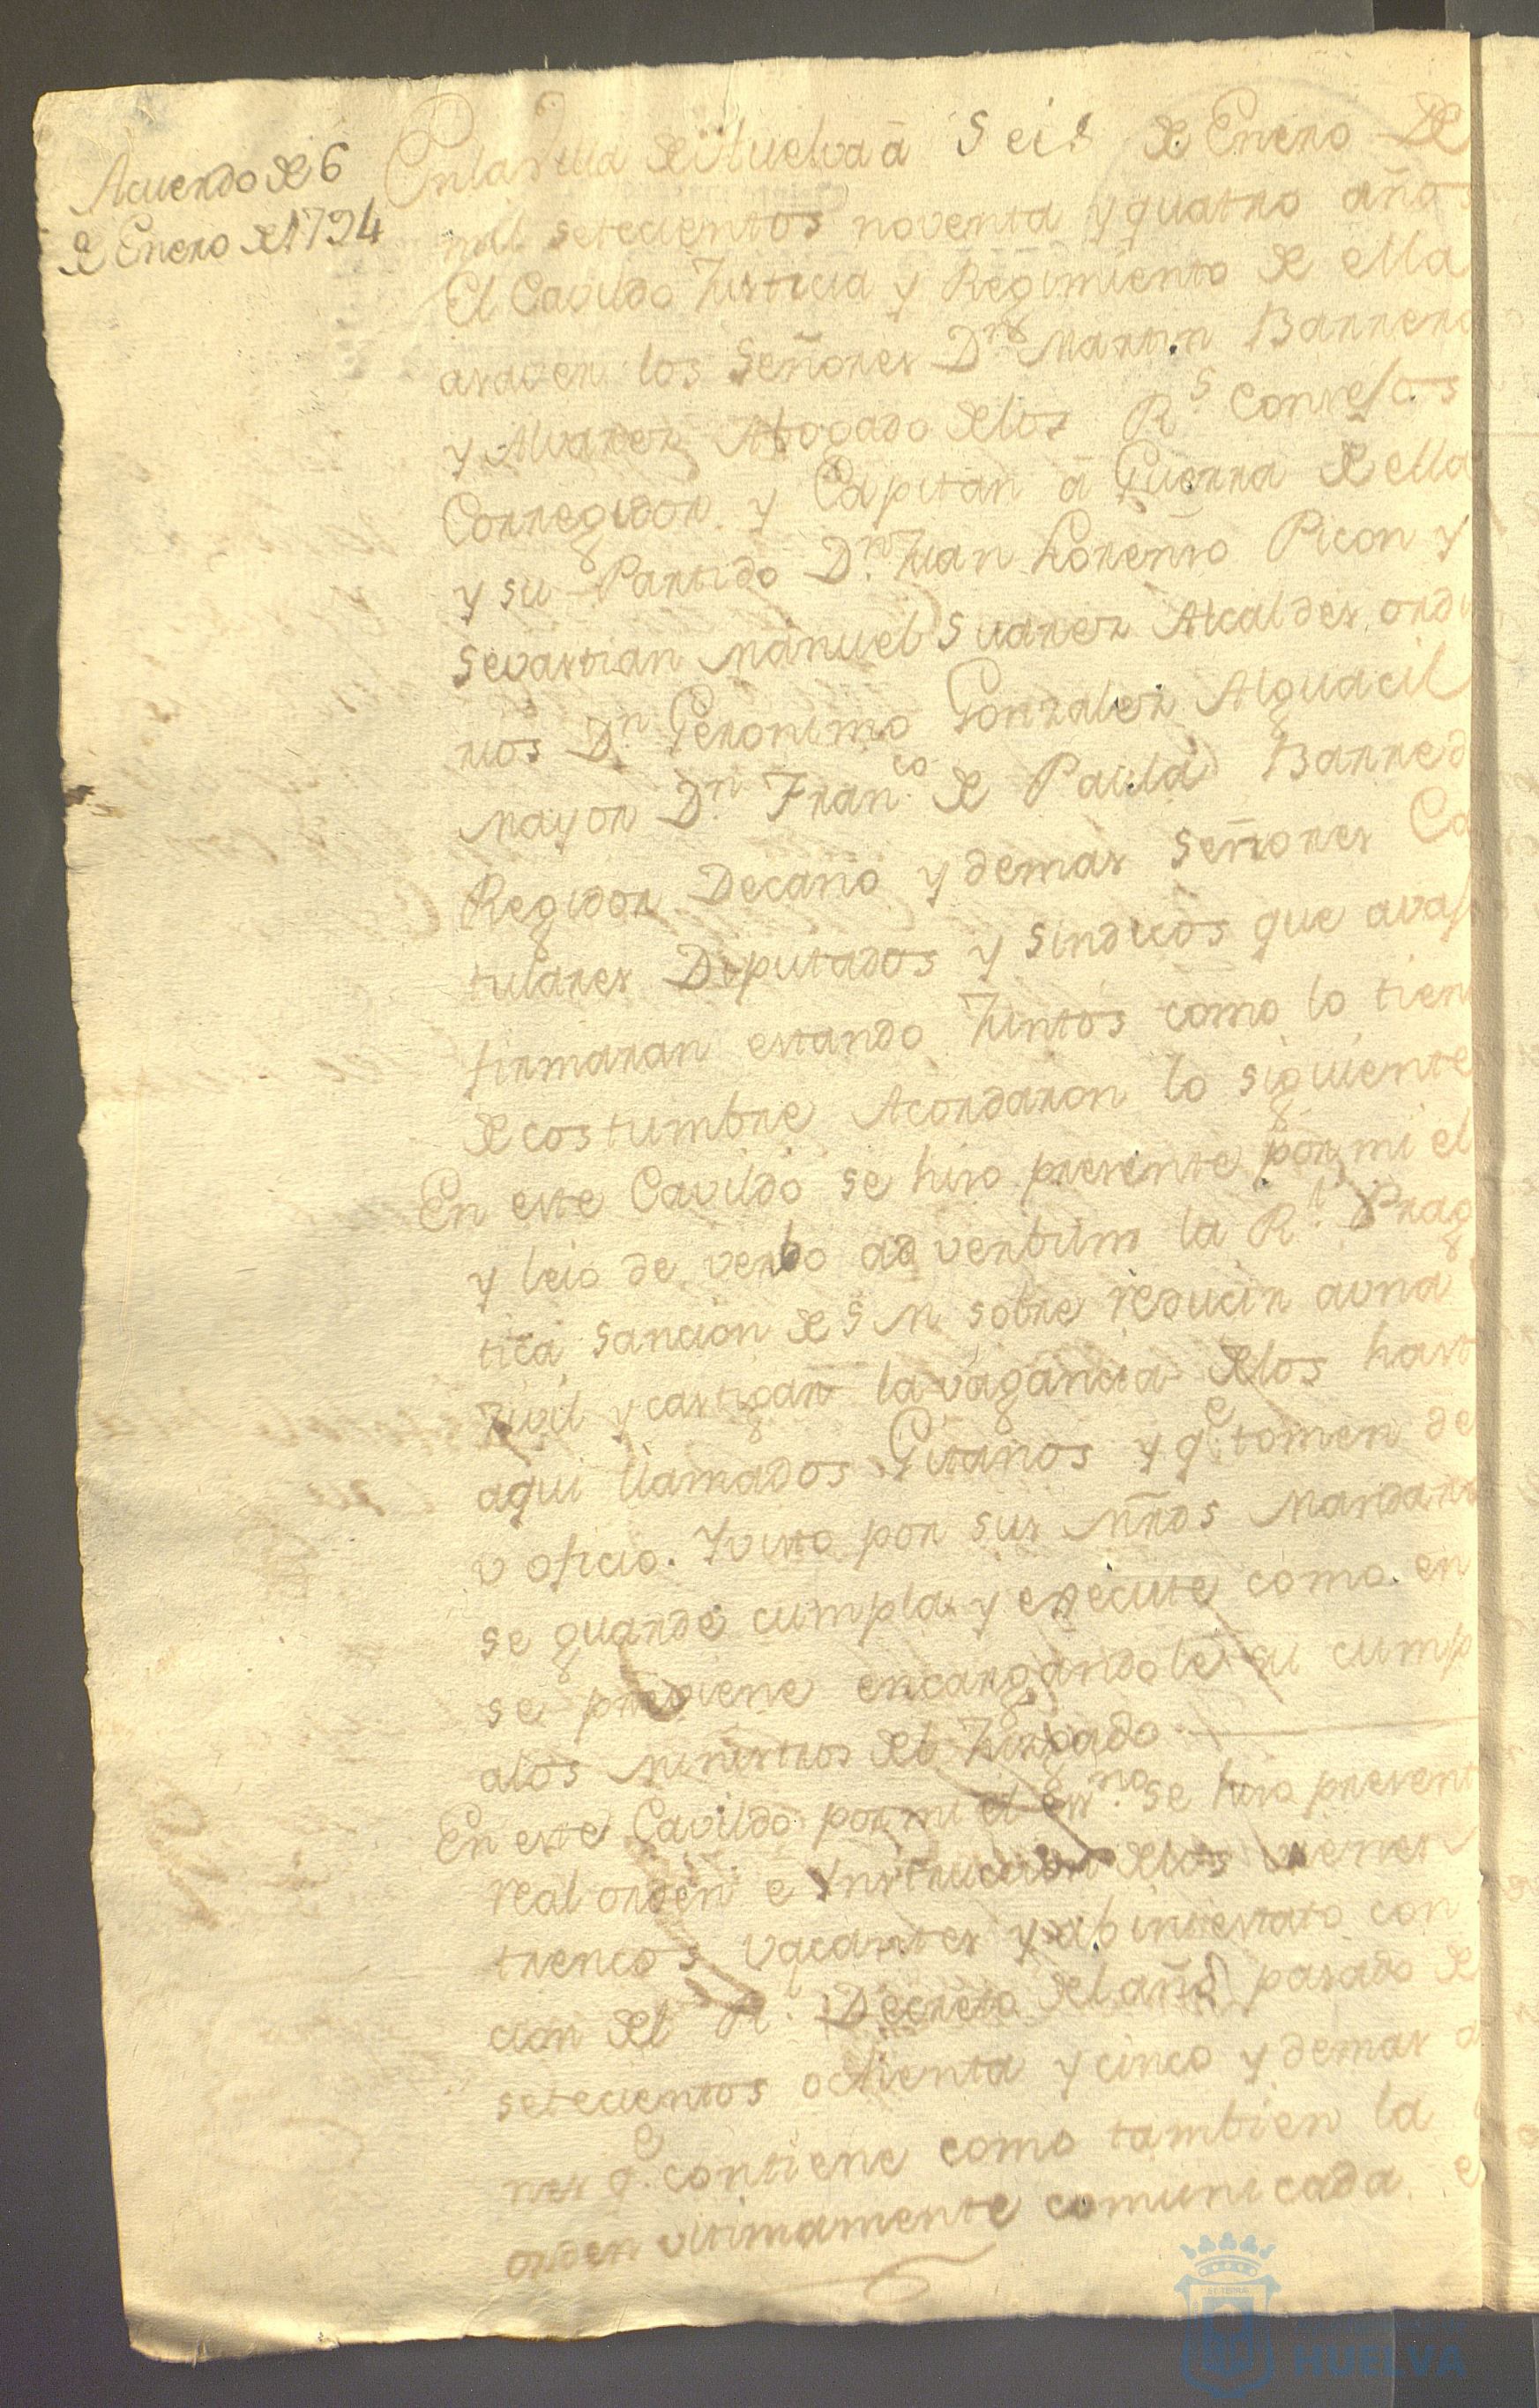 Acuerdo de 6
de Enero de 1794
En la Villa de Huelva á Seis de Enero de
mil setecientos noventa y quatro años
El Cavildo Justicia y Regimiento de ella
asaver los Señores Dn Martin Barrera
y Alvarez Abogado de los Rs. Consejos
Corregidor y Capitan á Guerra de ella
y su Partido Dn. Juan Lorenso Picon y
Sevastian Manuel Suarez Alcaldes ordi
rios Dn. Geronimo Gonzalez Alguacil
mayor Dn. Franco. de Paula Barred
Regidor Decano y demas Señores Ca
tulares Diputados y Sindicos que avajo
firmaran estando Juntos como lo tien
de costumbre Acordaron lo siguiente
En este Cavildo se hiso presente por mi el
y leio de verbo ad verbum la Rl. Prag
tica Sancion de S M sobre reducir a vna
Zivil y castigar la vagancia de los hast
aqui llamados Gitanos y qe. tomen de
v oficio. Y visto por sus mrds Mandaro
se guarde cumpla y execute como en
se previene encargandole su cump
a los Ministros del Juzgado
En este Cavildo por mi el essno. se hiso present
real orden e Ynstruccion de los vienes
trencos vacantes y abintestato con
cion del Rl. Decreto del año pasado de
setecientos ochenta y cinco y demas
nes qe. contiene como tambien la
orden vltimamente comunicada
HUELVA